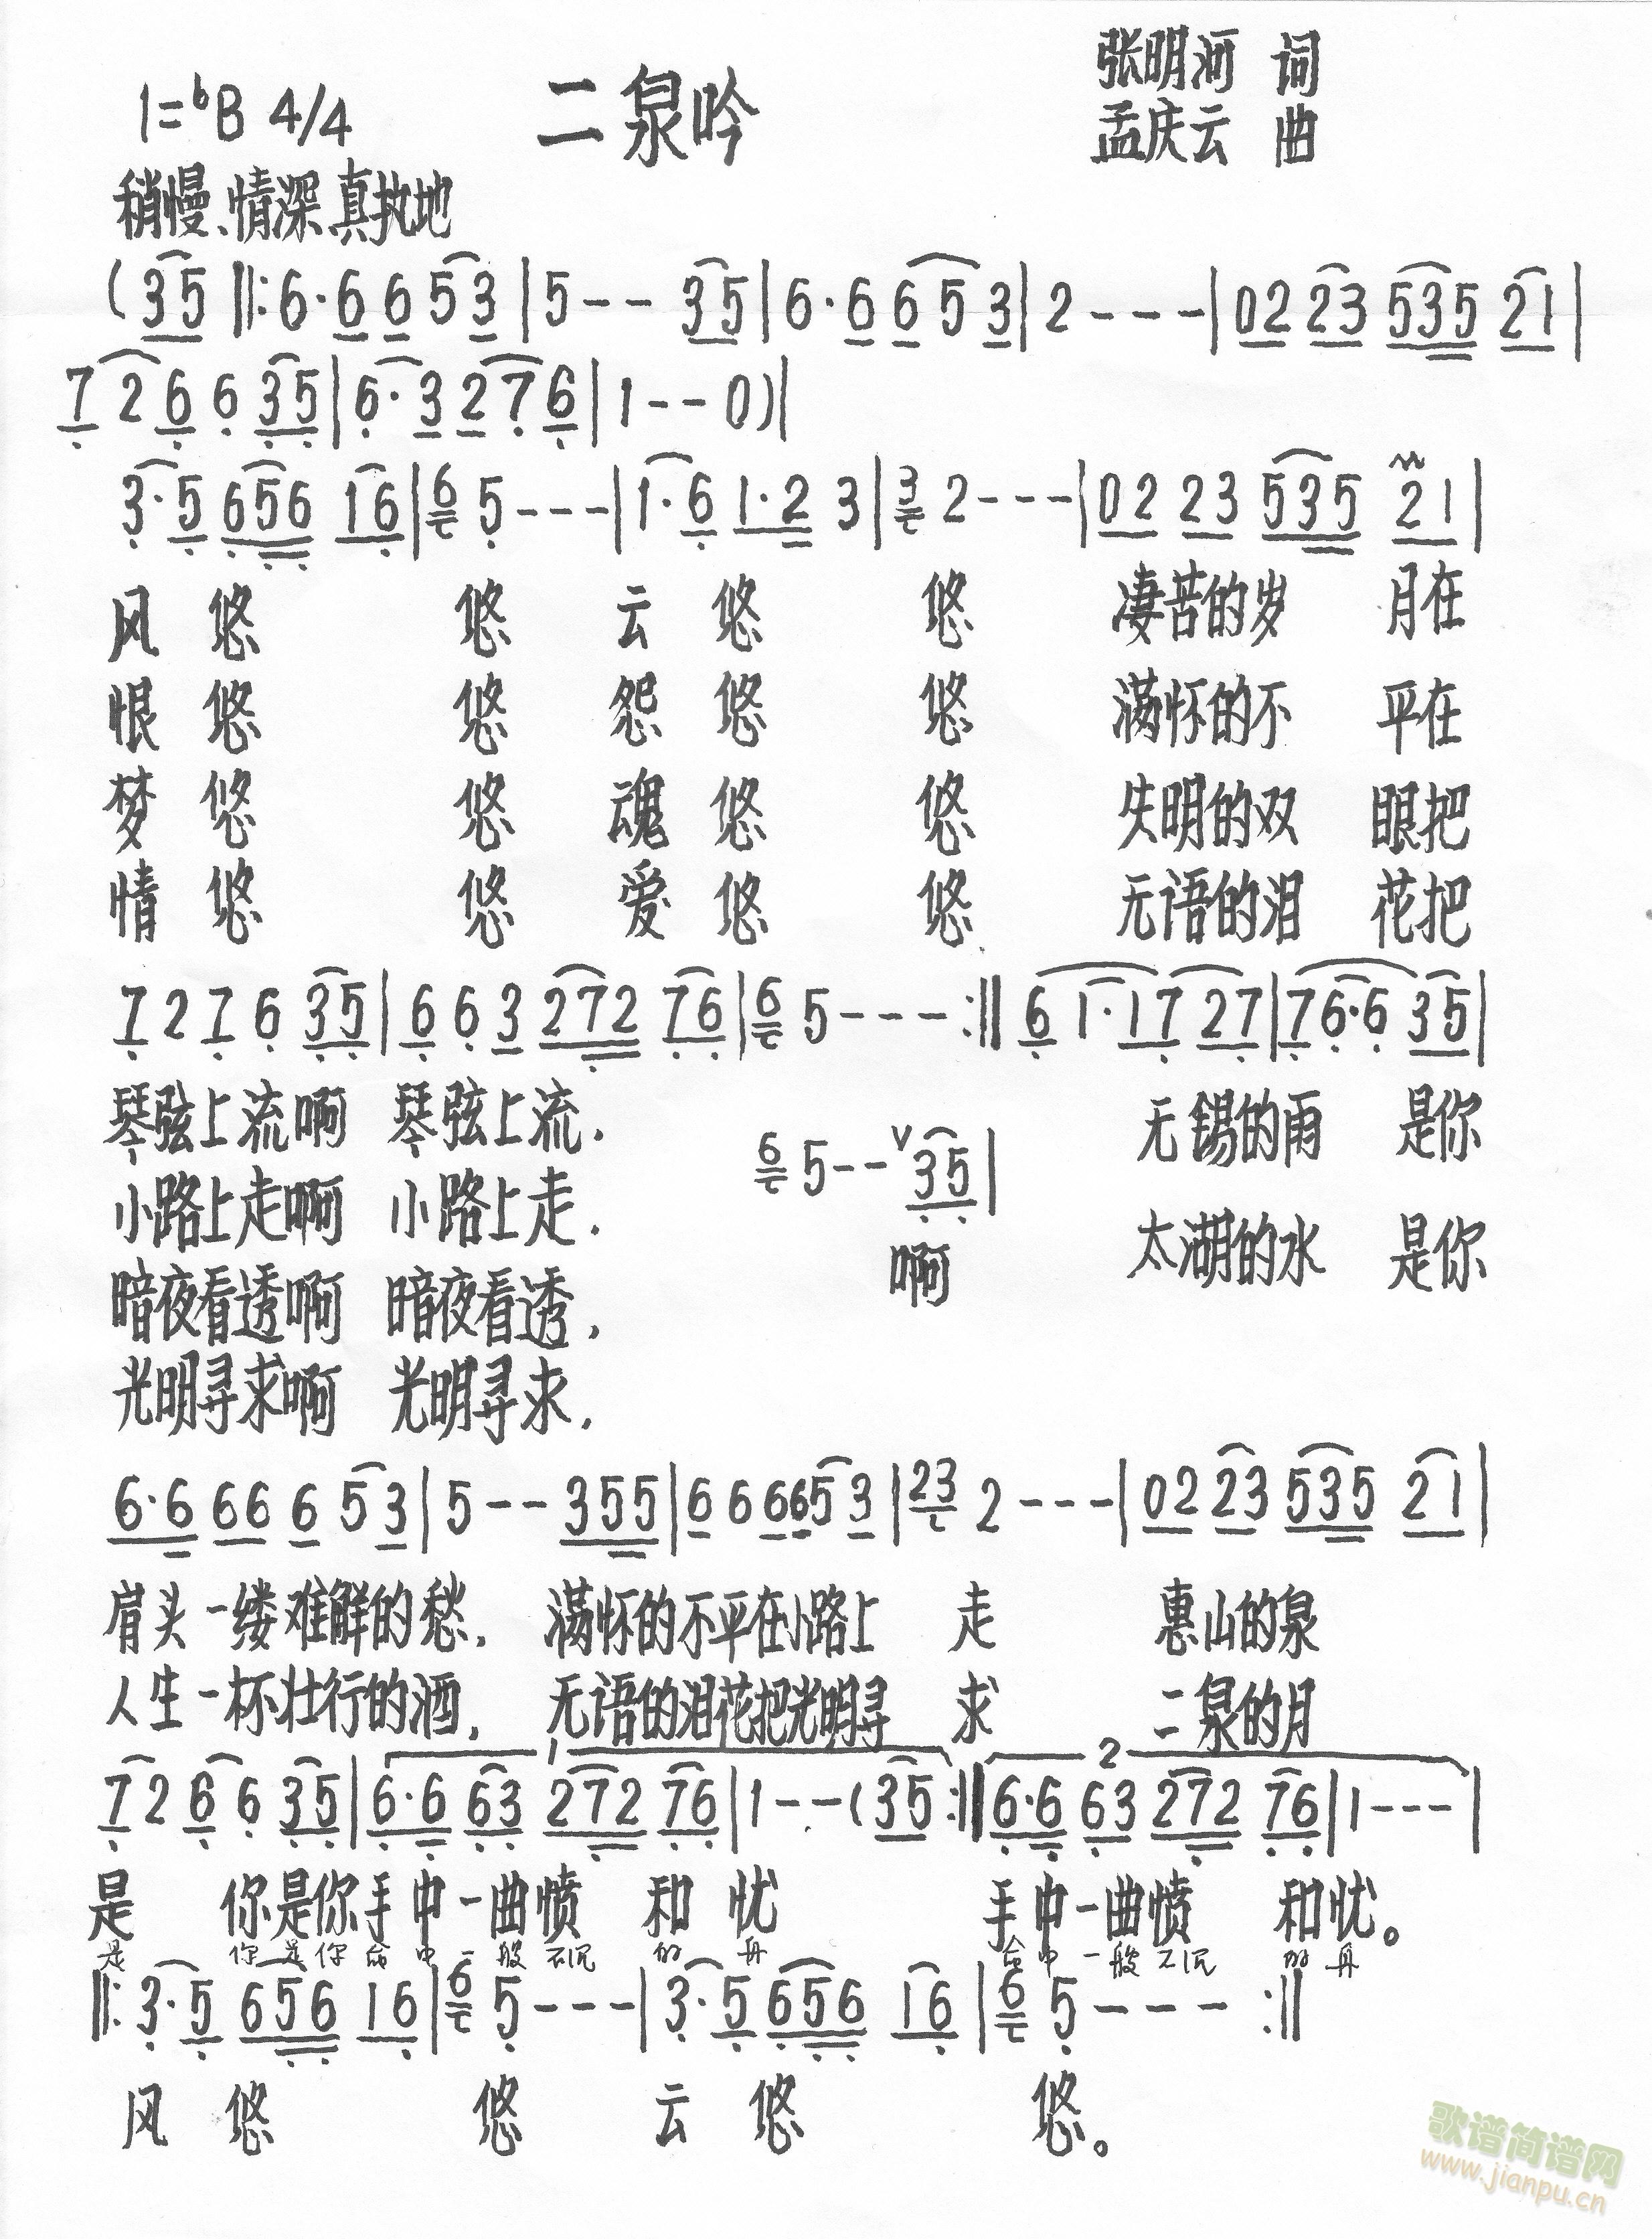 张明河 词
1=♭B 4/4 二泉吟
孟庆云 曲
稍慢、情深、真执地
(35 ‖: 6·6 6 5 3 | 5 - - 35 | 6·6 6 5 3 | 2 - - - | 02 23 535 21 |
7 2 6 6 35 | 6·3 2 7 6 | 1 - - 0) |
3·5 656 16 | 6 5 - - - | 1·6 1·2 3 | 3 2 - - - | 02 23 535 21 |
风 悠 悠 云 悠 悠 凄苦的岁 月在
恨 悠 悠 怨 悠 悠 满怀的不 平在
梦 悠 悠 魂 悠 悠 失明的双 眼把
情 悠 悠 爱 悠 悠 无语的泪 花把
7 2 7 6 35 | 6 6 3 272 76 | 6 5 - - - :‖ 6 1·17 27 | 76·6 35 |
琴弦上流啊 琴弦上流. 无锡的雨 是你
6 5 - - V 35 |
小路上走啊 小路上走. 太湖的水 是你
啊
暗夜看透啊 暗夜看透,
光明寻求啊 光明寻求.
6·6 66 6 5 3 | 5 - - 355 | 6 6 6653 | 23 2 - - - | 02 23 535 21 |
肩头一缕难解的愁, 满怀的不平在小路上 走 惠山的泉
人生一杯壮行的酒, 无语的泪花把光明寻 求 二泉的月
1 2
7 2 6 6 35 | 6·6 63 272 76 | 1 - - (35 :‖ 6·6 63 272 76 | 1 - - - |
是 你是你手中一曲愤 和 忧 手中一曲愤 和忧。
是 你是你命中一般不沉 的 舟 命中一般不沉 的 舟
‖: 3·5 656 16 | 6 5 - - - | 3·5 656 16 | 6 5 - - - :‖
风 悠 悠 云 悠 悠。
歌谱简谱网
www.jianpu.cn